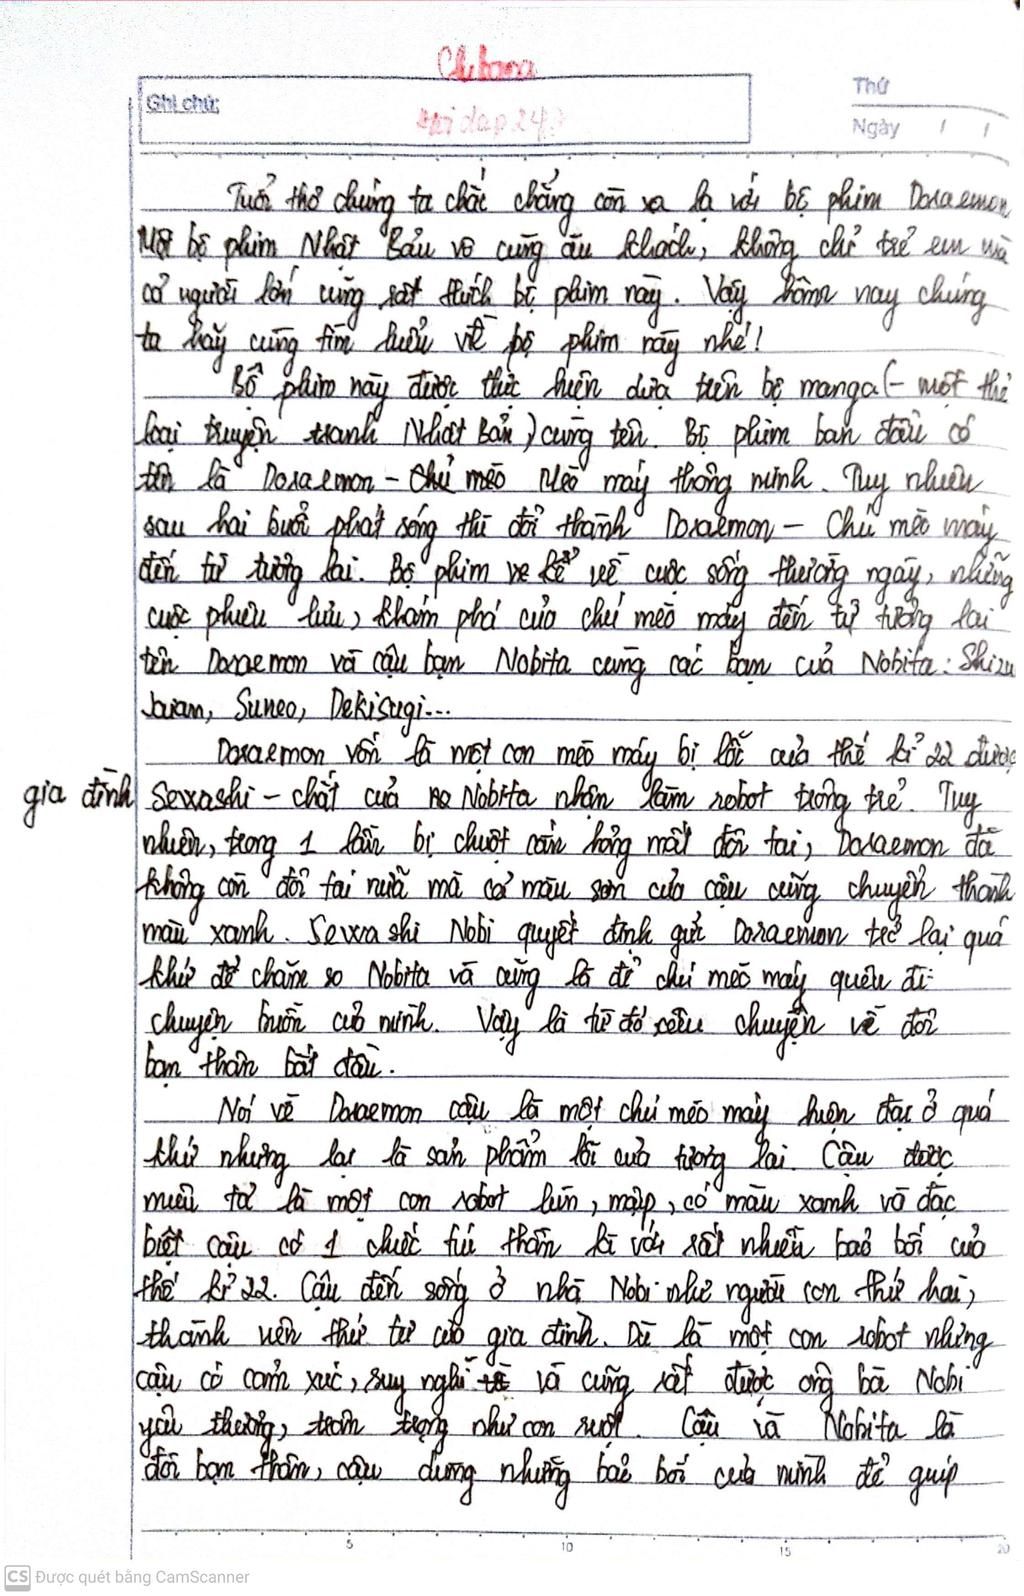 Ghi chú:
Hoidap247
Thứ
Ngày / /
Tuổi thơ chúng ta chắc chẳng còn xa lạ với bộ phim Doraemon
Một bộ phim Nhật Bản vô cùng ăn khách, không chỉ trẻ em mà
cả người lớn cũng rất thích bộ phim này. Vậy hôm nay chúng
ta hãy cùng tìm hiểu về bộ phim này nhé!
Bộ phim này được thực hiện dựa trên bộ manga (- một thể
loại truyện tranh Nhật Bản) cùng tên. Bộ phim ban đầu có
tên là Doraemon - Chú mèo Mèo máy thông minh. Tuy nhiên
sau hai buổi phát sóng thì đổi thành Doraemon - Chú mèo máy
đến từ tương lai. Bộ phim kể về cuộc sống thường ngày, những
cuộc phiêu lưu, khám phá của chú mèo máy đến từ tương lai
tên Doraemon và cậu bạn Nobita cùng các bạn của Nobita: Shizu
Jaian, Suneo, Dekisugi...
Doraemon vốn là một con mèo máy bị lỗi của thế kỉ 22 được
gia đình Sewashi - chắt của Nobita nhận làm robot trông trẻ. Tuy
nhiên, trong 1 lần bị chuột cắn hỏng mất đôi tai, Doraemon đã
không còn đôi tai nữa mà cả màu sơn của cậu cũng chuyển thành
màu xanh. Sewashi Nobi quyết định gửi Doraemon trở lại quá
khứ để chăm so Nobita và cũng là để chú mèo máy quên đi
chuyện buồn của mình. Vậy là từ đó câu chuyện về đôi
bạn thân bắt đầu.
Nói về Doraemon cậu là một chú mèo máy hiện đại ở quá
khứ nhưng lại là sản phẩm lỗi của tương lai. Cậu được
miêu tả là một con robot lùn, mập, có màu xanh và đặc
biệt cậu có 1 chiếc túi thần kì với rất nhiều bảo bối của
thế kỉ 22. Cậu đến sống ở nhà Nobi như người con thứ hai,
thành viên thứ tư của gia đình. Dù là một con robot nhưng
cậu có cảm xúc, suy nghĩ và cũng rất được ông bà Nobi
yêu thương, trân trọng như con ruột. Cậu và Nobita là
đôi bạn thân, cậu dùng những bảo bối của mình để giúp
5 10 15 20
CS Được quét bằng CamScanner